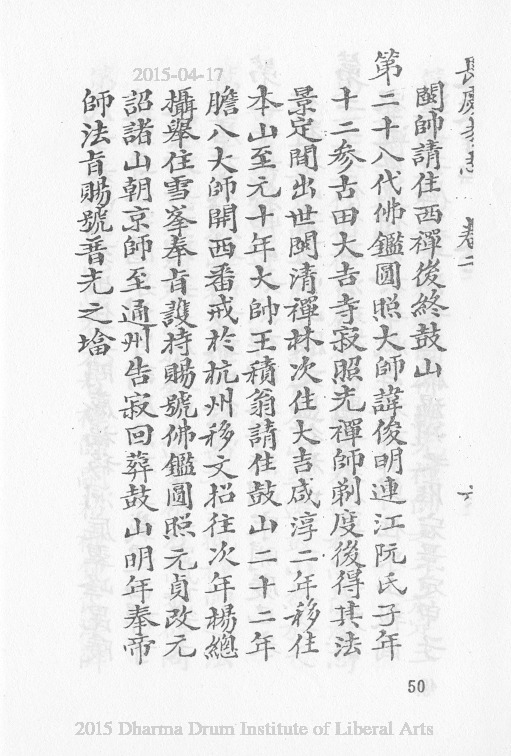 2015-04-17
長慶寺志 卷二 六
閩帥請住西禪後終鼓山
第二十八代佛鑑圓照大師諱俊明連江阮氏子年
十二參古田大吉寺寂照光禪師剃度後得其法
景定間出世閩清禪林次住大吉咸淳二年移住
本山至元十年大帥王積翁請住鼓山二十二年
膽八大師開西番戒於杭州移文招往次年楊總
攝舉住雪峯奉旨護持賜號佛鑑圓照元貞改元
詔諸山朝京師至通州告寂回葬鼓山明年奉帝
師法旨賜號普光之塔
50
2015 Dharma Drum Institute of Liberal Arts